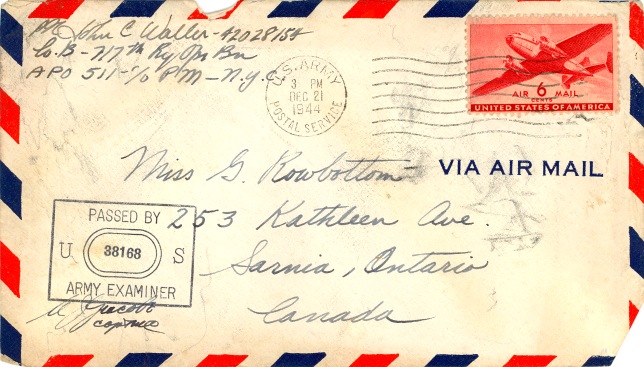 Pvt John C Waller - 42028154
Co. B - 717th Ry Opr Bn
APO 511 - c/o P M - N.Y.C.
U.S. ARMY
3 PM
DEC 21
1944
POSTAL SERVICE
AIR 6 MAIL
CENTS
UNITED STATES OF AMERICA
VIA AIR MAIL
Miss G. Rowbottom
253 Kathleen Ave.
Sarnia, Ontario
Canada
PASSED BY
U 38168 S
ARMY EXAMINER